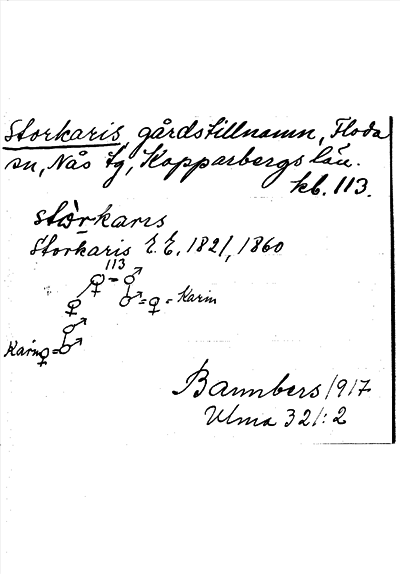 Storkaris, gårdstillnamn, Floda
sn, Nås tg, Kopparbergs län.
kb. 113.
stòrkarıs
Storkaris E. E. 1821, 1860
113
♀ - ♂
♀ ♂ = ♀ = Karin
♂
Karin ♀ = ♂
Bannbers 1917
Ulma 321:2